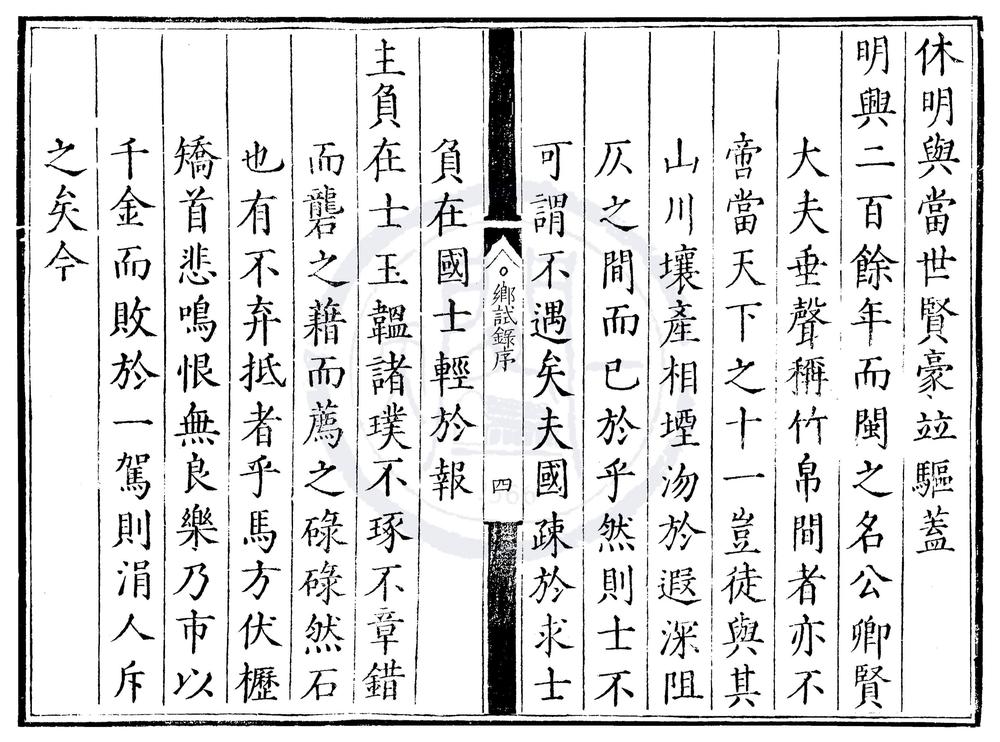 休明與當世賢豪並驅蓋
明興二百餘年而閩之名公卿賢
大夫垂聲稱竹帛間者亦不
啻當天下之十一豈徒與其
山川壤產相堙沕於遐深阻
仄之間而已於乎然則士不
可謂不遇矣夫國疎於求士
鄉試錄序
四
負在國士輕於報
主負在士玉韞諸璞不琢不章錯
而礱之藉而薦之碌碌然石
也有不弃抵者乎馬方伏櫪
矯首悲鳴恨無良樂乃市以
千金而敗於一駕則涓人斥
之矣今